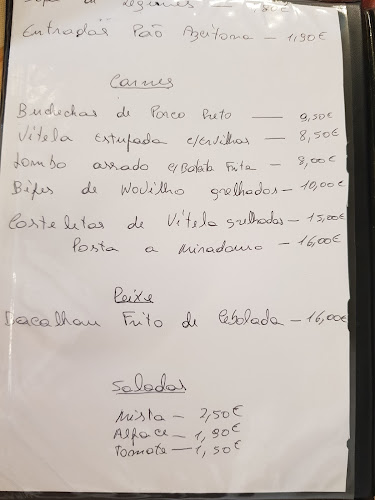 de legumes — 1,50€
Entradas Pão Azeitona — 1,90€
Carnes
Buchechas de Porco Preto — 9,50€
Vitela Estufada c/Ervilhas — 8,50€
Lombo assado c/Batata Frita — 8,00€
Bifes de Novilho grelhados — 10,00€
Costeletas de Vitela grelhadas — 15,00€
Posta a Miradouro — 16,00€
Peixe
Bacalhau Frito de Cebolada — 16,00€
Saladas
Mista — 2,50€
Alface — 1,90€
Tomate — 1,50€